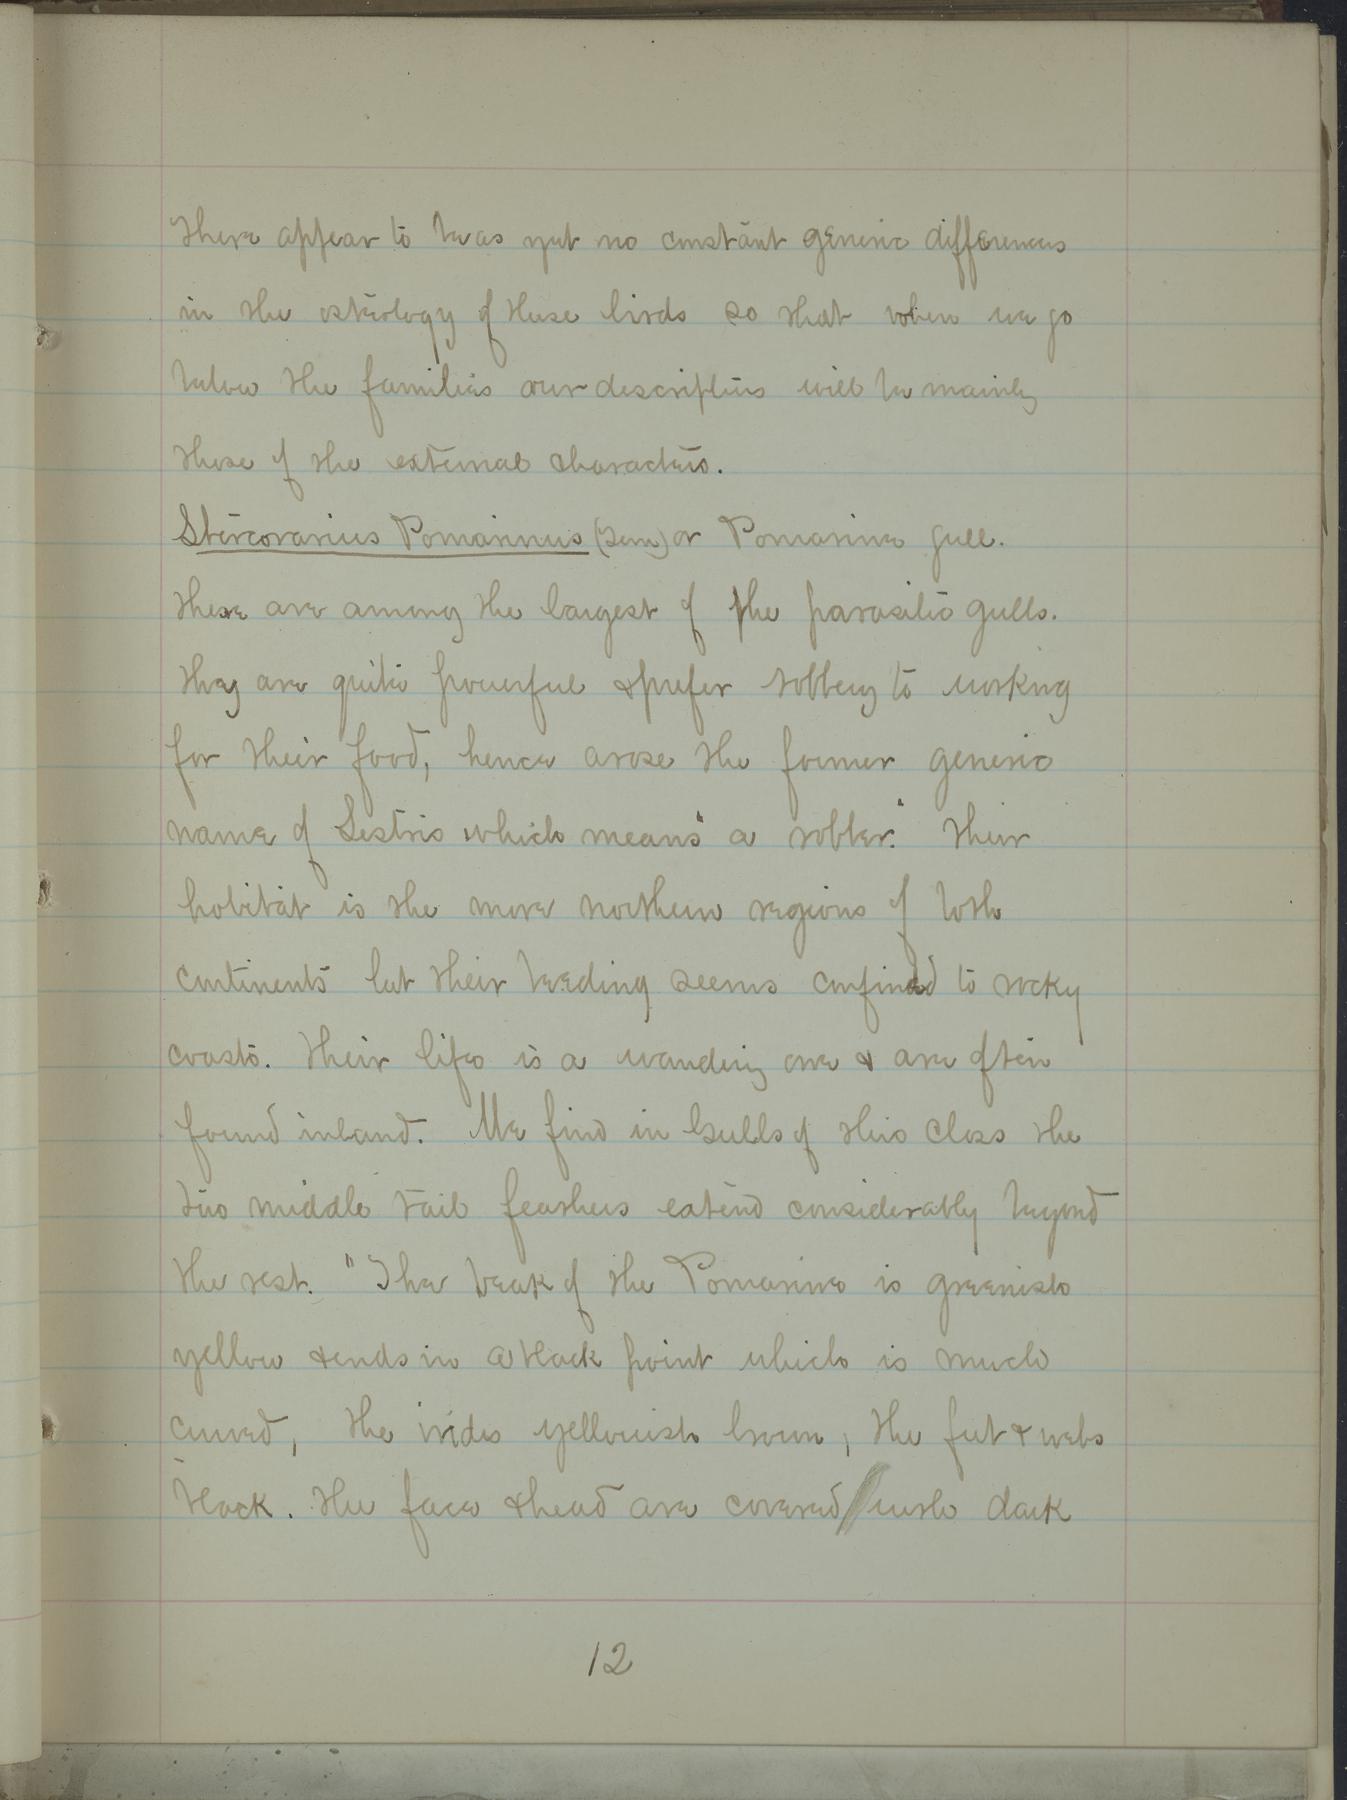 There appear to be as yet no constant generic differences
in the osteology of these birds so that when we go
below the families our descriptions will be mainly
those of the external characters.
Stercorarius Pomarinus (Tem) or Pomarine gull.
These are among the largest of the parasitic gulls.
They are quite powerful & prefer robbery to working
for their food, hence arose the former generic
name of Lestris which means "a robber." Their
habitat is the more northern regions of both
continents but their breeding seems confined to rocky
coasts. Their life is a wandering one & are often
found inland. We find in Gulls of this class the
two middle tail feathers extend considerably beyond
the rest. "The beak of the Pomarine is greenish
yellow & ends in a black point which is much
curved, the irides yellowish brown, the feet & webs
black. The face & head are covered with dark
12